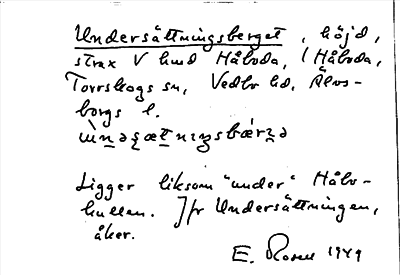 Undersättningsberget, höjd,
strax V hmd Håbvda, (Håbvda,
Torrskogs sn, Vedbo hd, Älvs-
borgs l.

Ligger liksom "under" Håbv-
kullen. Jfr Undersättningen,
åker.
E. Rosen 1949